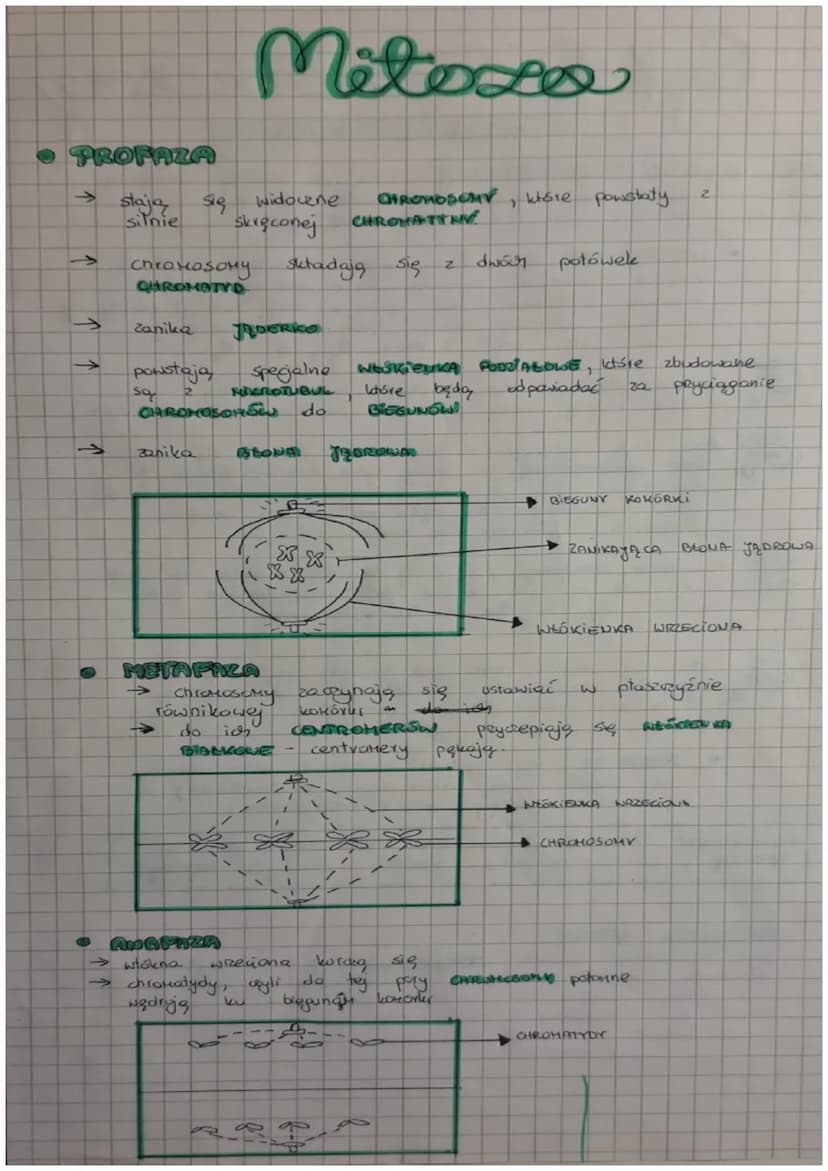 Mitoza
• PROFAZA
→ stają się widoczne CHROMOSOMY, które powstały z
silnie skręconej CHROMATYNY
→ chromosomy składają się z dwóch połówek
CHROMATYD
→ zanika JĄDERKO
→ powstają specjalne WŁÓKIENKA PODZIAŁOWE, które zbudowane
są z MIKROTUBUL, które będą odpowiadać za przyciąganie
CHROMOSOMÓW do BIEGUNÓW
→ zanika BŁONA JĄDROWA
BIEGUNY KOMÓRKI
ZANIKAJĄCA BŁONA JĄDROWA
WŁÓKIENKA WRZECIONA
• METAFAZA
→ chromosomy zaczynają się ustawiać w płaszczyźnie
równikowej komórki - do ich
→ do ich CENTROMERÓW przyczepiają się WŁÓKIENKA
BIAŁKOWE - centromery pękają.
WŁÓKIENKA WRZECIONA
CHROMOSOMY
• ANAFAZA
→ włókna wrzeciona kurczą się
→ chromatydy, czyli do tej pory CHROMOSOMY potomne
wędrują ku biegunom komórki
CHROMATYDY